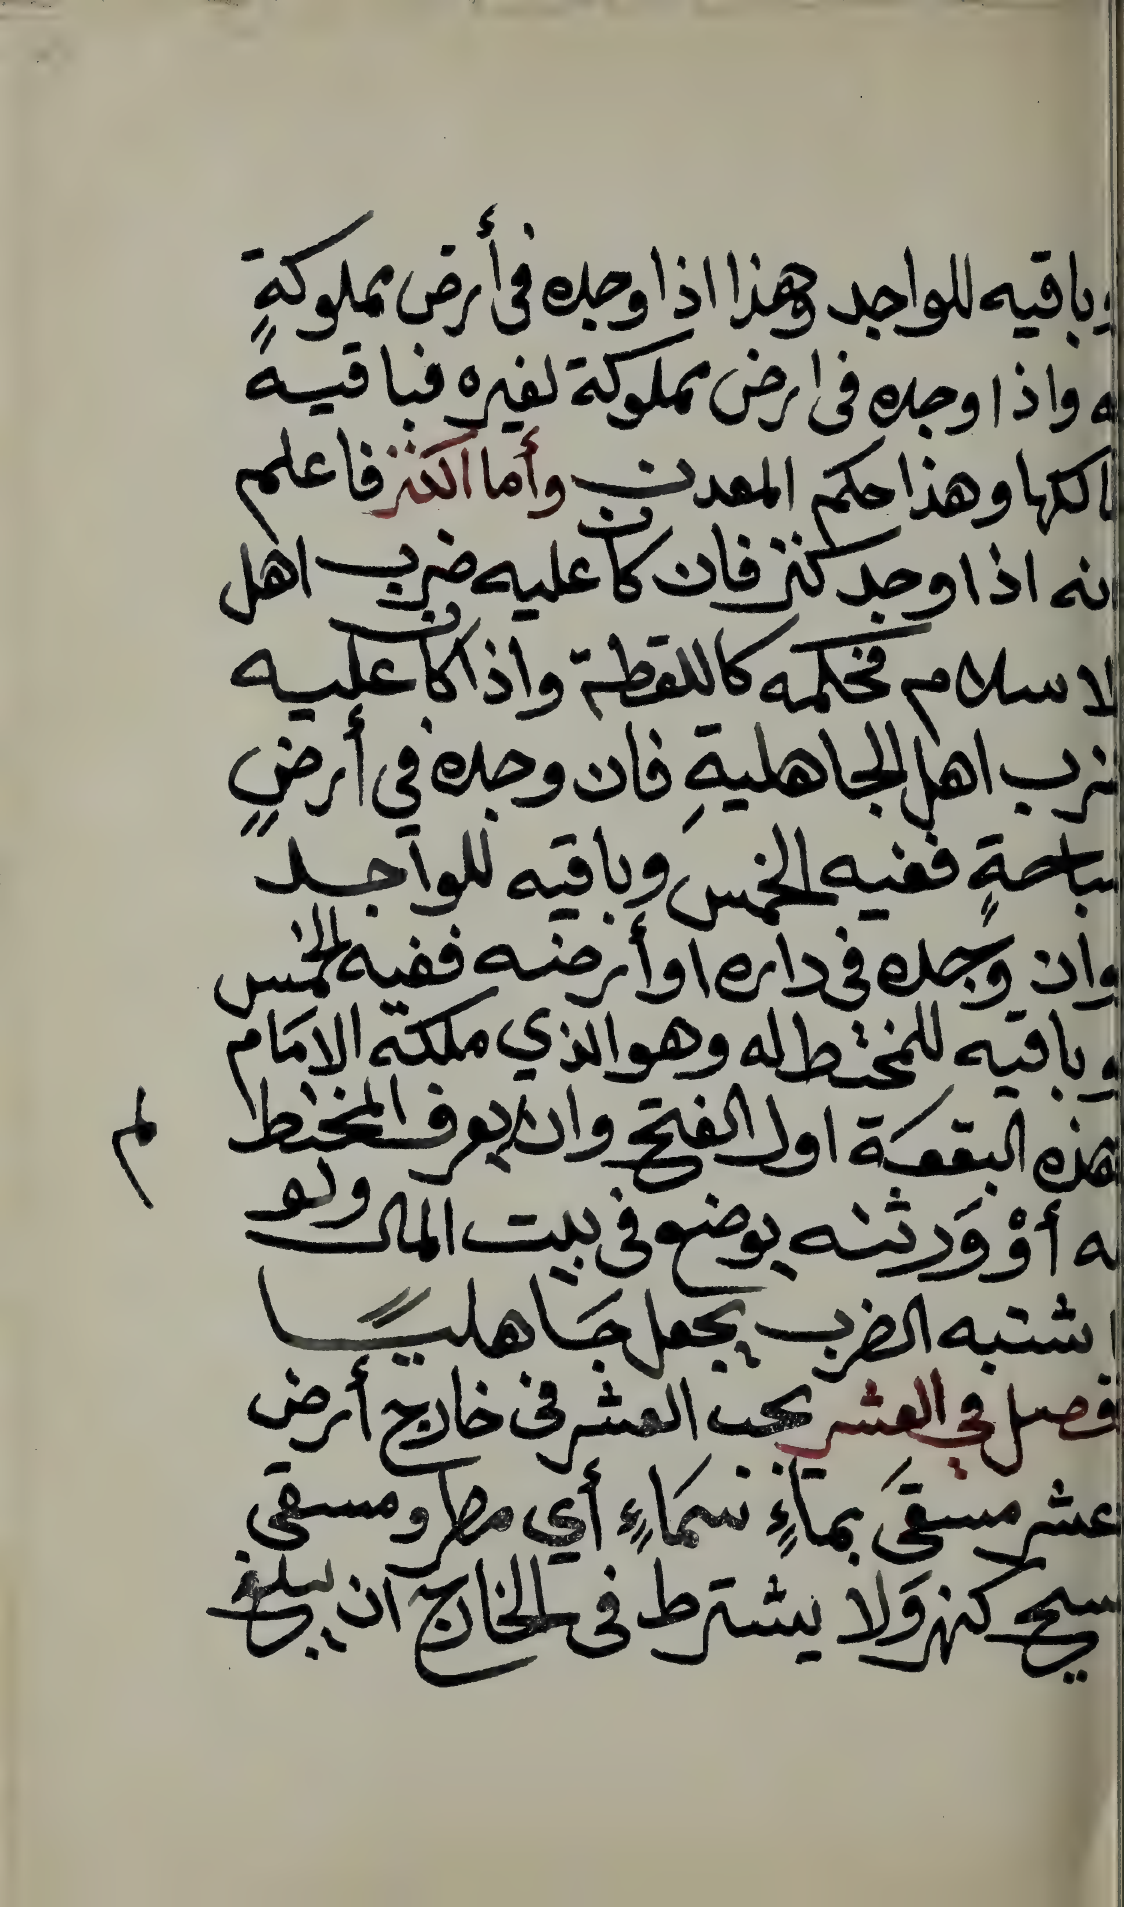 وباقيه للواجد وهذا اذا وجده فى أرض مملوكةٍ
له واذا وجده فى ارض مملوكة لغيره فباقيه
لمالكها وهذا حكم المعدن وأما الكنز فاعلم
انه اذا وجد كنز فان كان عليه ضرب اهل
الاسلام فحكمه كاللقطة واذا كان عليه
ضرب اهل الجاهليةِ فان وجده في أرضٍ
مباحةٍ ففيه الخمس وباقيه للواجد
وان وجده فى داره او أرضه ففيه الخمس
وباقيه للمختط له وهو الذي ملكه الامَام
هذه البقعة اول الفتح وان يعرف المختط
لم
له أوْ وَرثته يوضع فى بيت المال ولو
اشتبه الضرب يجعل جَاهليًا
فصل في العشر يجب العشر فى خارج أرض
عشر مسقىَ بماءٍ سمَاءٍ أي مطر ومسقى
سيح كنهر وَلا يشترط فى الخارج ان يبلغ